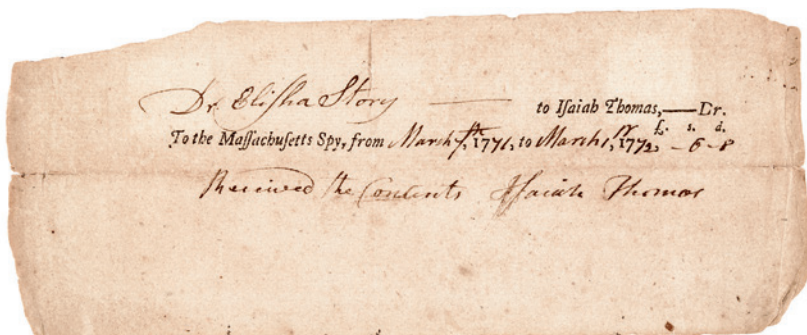 Dr. Elisha Story — to Iſaiah Thomas,—Dr.
£. s. d.
To the Maſſachuſetts Spy, from March 7th, 1771, to March 1st, 1772, – 6 – 8
Received the Contents Isaiah Thomas